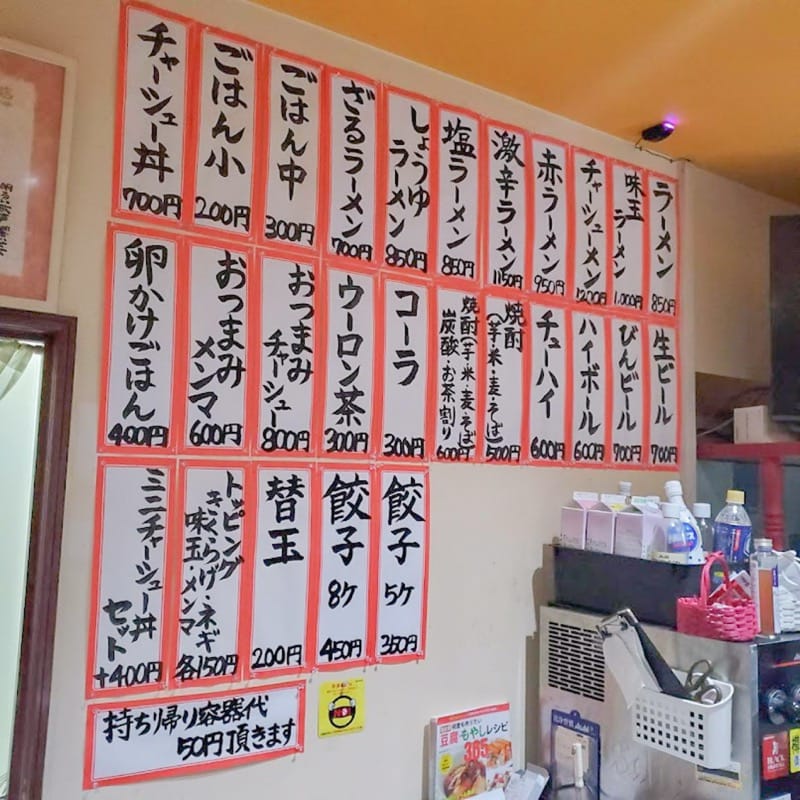 ラーメン
850円
味玉
ラーメン
1,000円
チャーシューメン
1200円
赤ラーメン
950円
激辛ラーメン
1150円
塩ラーメン
850円
しょうゆ
ラーメン
850円
ざるラーメン
700円
ごはん中
300円
ごはん小
200円
チャーシュー丼
700円
生ビール
700円
びんビール
700円
ハイボール
600円
チューハイ
600円
焼酎
(芋・米・麦・そば)
500円
焼酎(芋・米・麦・そば)
炭酸・お茶割り
600円
コーラ
300円
ウーロン茶
300円
おつまみ
チャーシュー
800円
おつまみ
メンマ
600円
卵かけごはん
400円
餃子
5ケ
350円
餃子
8ケ
450円
替玉
200円
トッピング
きくらげ・ネギ
味玉・メンマ
各150円
ミニチャーシュー丼
セット
+400円
持ち帰り容器代
50円頂きます
豆腐・もやしレシピ
365
Asahi
BLACK